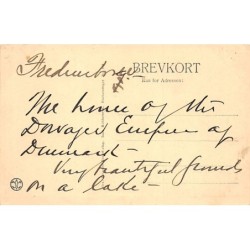 Fredensborg
BREVKORT
Kun for Adressen
The home of the
Dowager Empress of
Denmark —
Very beautiful grounds
on a lake —